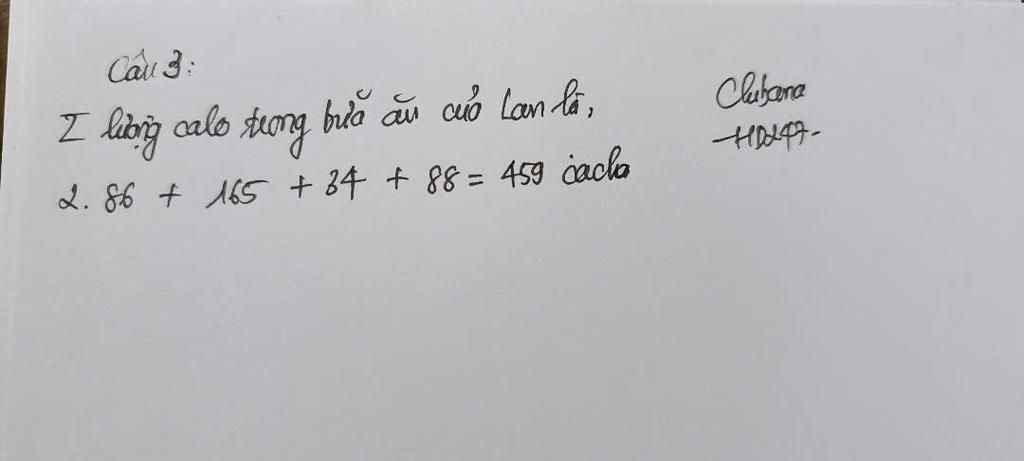 Câu 3:
Σ lượng calo trong bữa ăn của Lan là,
2. 86 + 165 + 34 + 88 = 459 cacla
Clubana
-HD247-